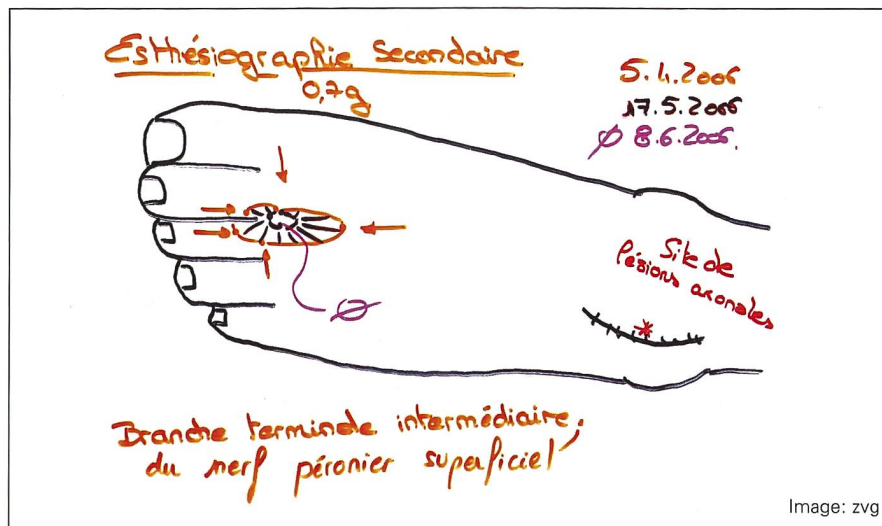 Esthésiographie Secondaire
0,7g
5.4.2006
17.5.2006
Ø 8.6.2006.
Site de
lésions axonales
Ø
Branche terminale intermédiaire,
du nerf péronier superficiel
Image: zvg